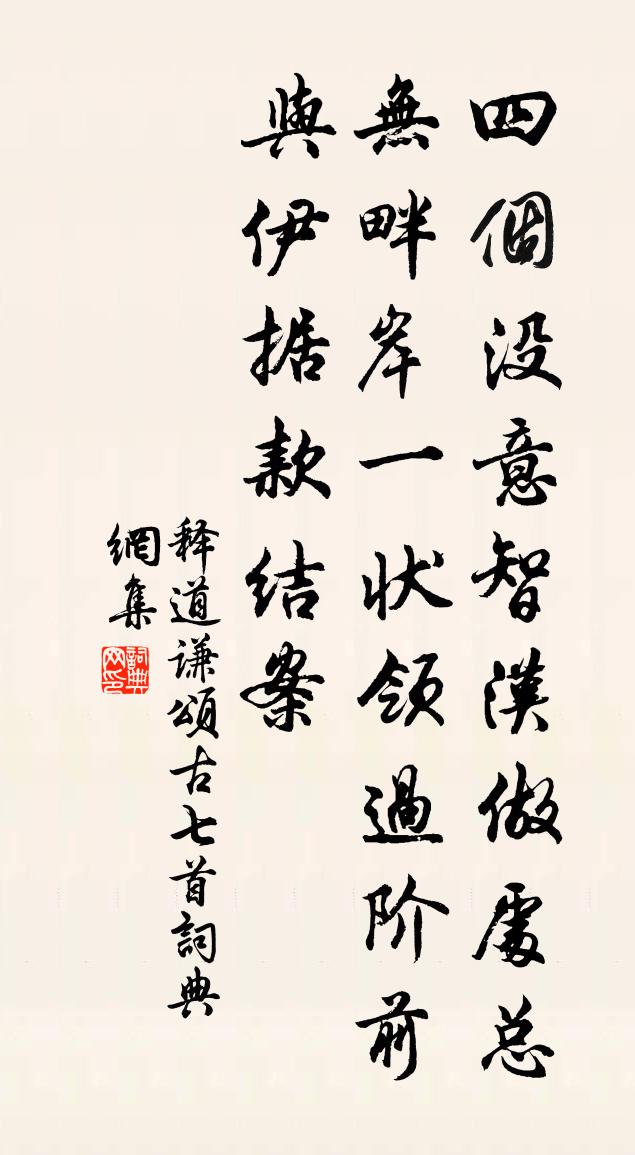 四個没意智漢做處总
無畔岸一状领過阶前
與伊据款结案
释道谦頌古七首詞典
網集
詞典
网印